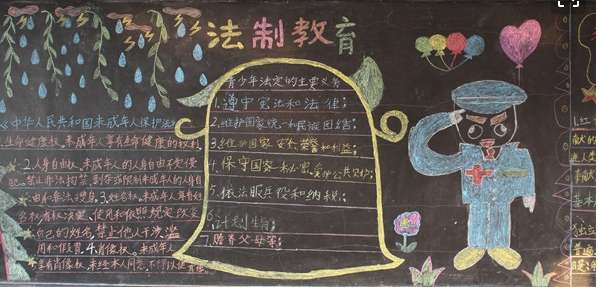 法制教育
《中华人民共和国未成年人保护法》
生命健康权,未成年人享有生命健康的权利
2.人身自由权,未成年人的人身自由不受侵
犯,禁止非法拘禁,剥夺或限制未成年人的人身自
由和非法搜身,3.姓名权,未成年人享有
名权有权决定,使用和依照规定改变
自己的姓名,禁止他人干涉,滥
用和假冒,4.肖像权,未成年人
享有肖像权,未经本人同意,不得以
青少年法定的主要义务
1.遵守宪法和法律;
2.维护国家统一和民族团结;
3.维护国家安全、荣誉和利益;
4.保守国家秘密,爱护公共财产;
5.依法服兵役和纳税;
6.计划生育;
7.赡养父母等;